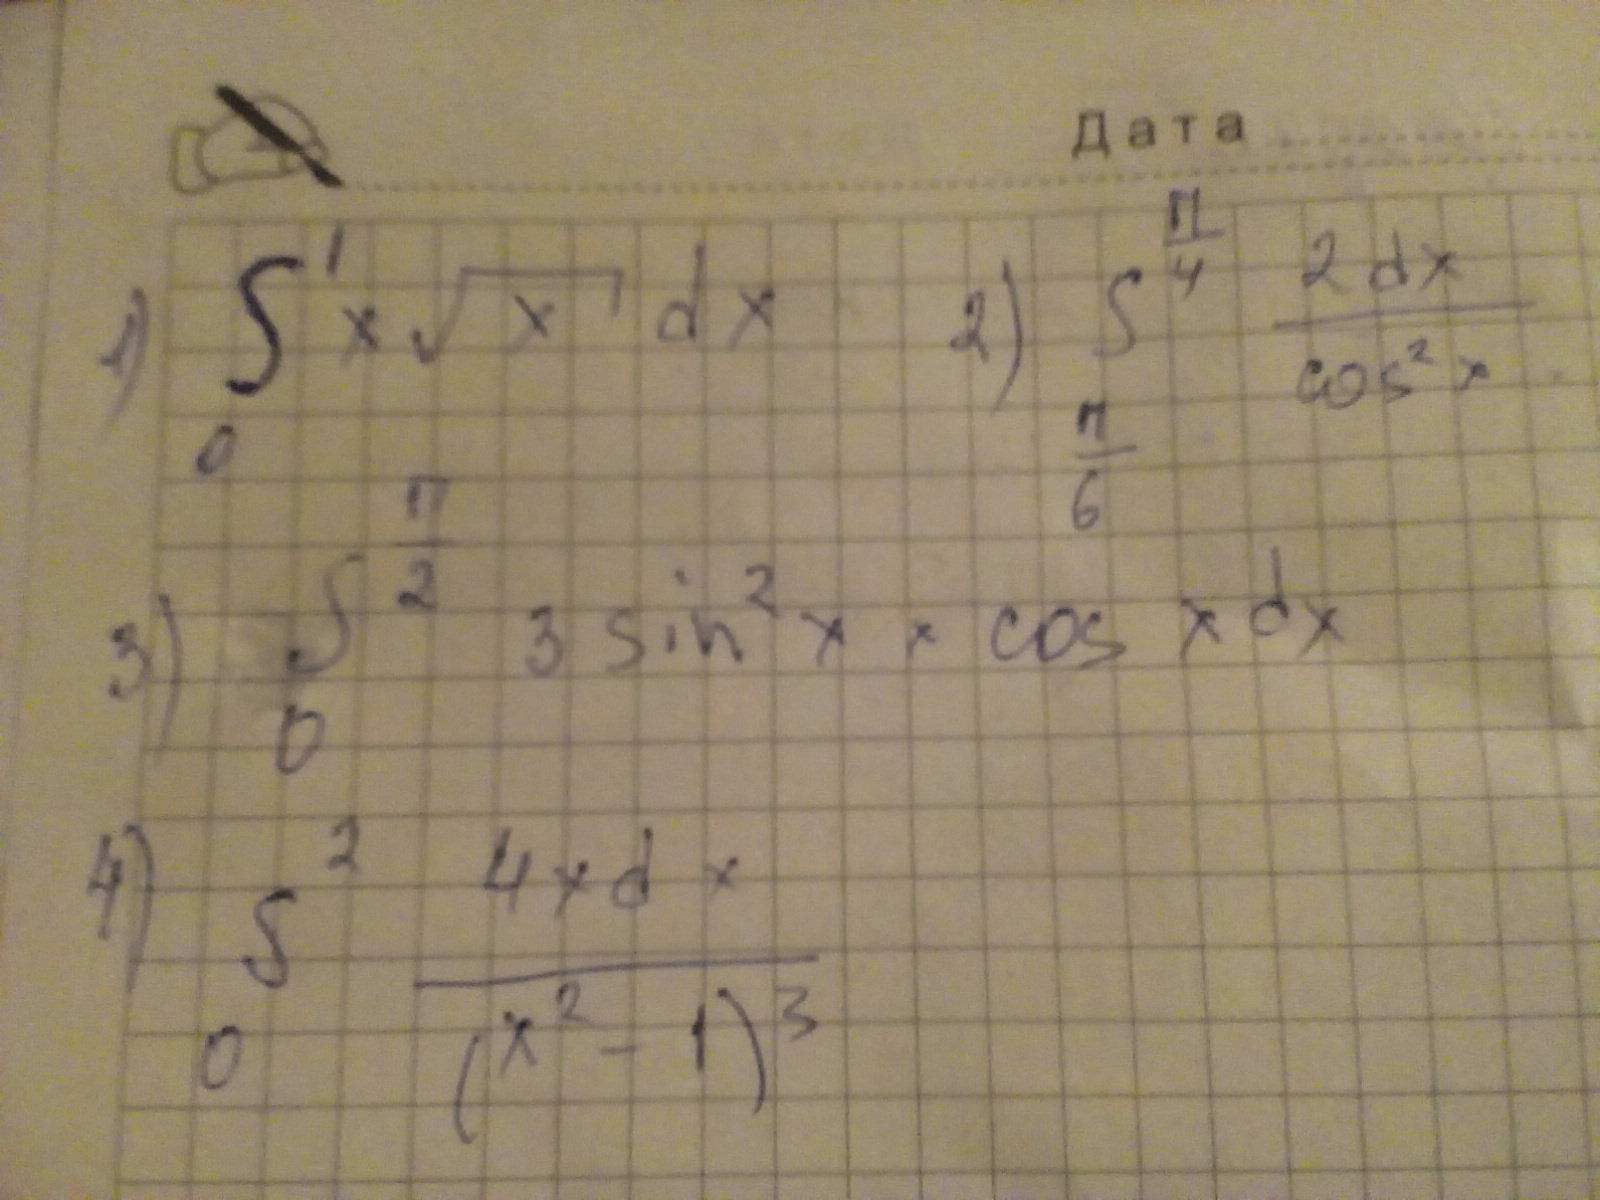 Дата
1) ∫₀¹ x√x dx 2) ∫_{π/6}^{π/4} 2dx/cos²x
3) ∫₀^{π/2} 3 sin²x × cos x dx
4) ∫₀² 4xdx/(x² - 1)³